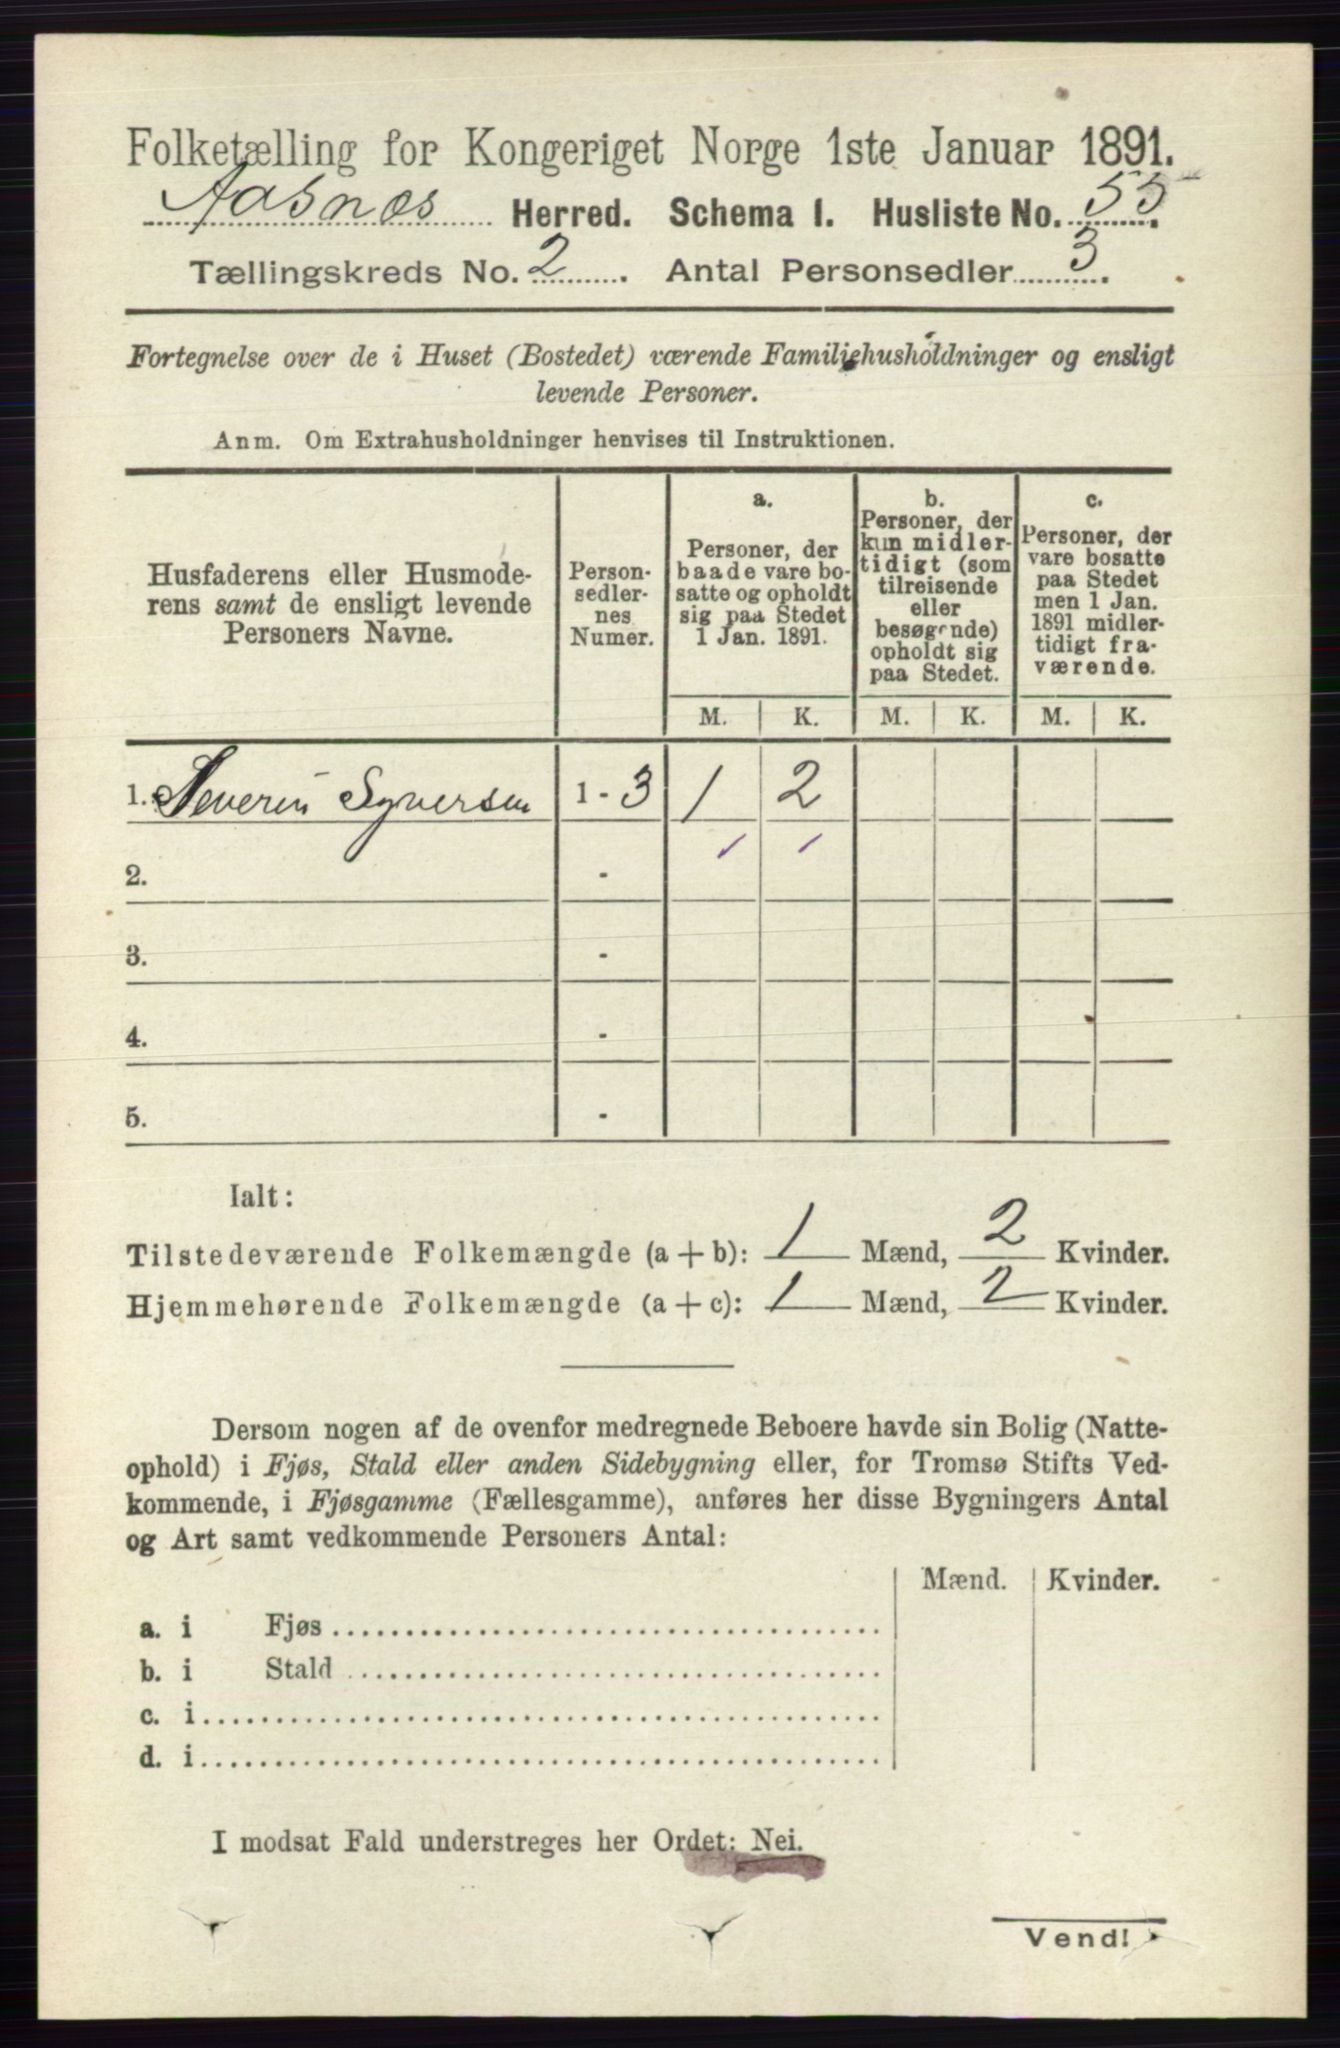 Folketælling for Kongeriget Norge 1ste Januar 1891.
Aasnæs Herred. Schema 1. Husliste No. 55.
Tællingskreds No. 2. Antal Personsedler 3.
Fortegnelse over de i Huset (Bostedet) værende Familiehusholdninger og ensligt
levende Personer.
Anm. Om Extrahusholdninger henvises til Instruktionen.
Husfaderens eller Husmode-
rens samt de ensligt levende
Personers Navne.
Person-
sedler-
nes
Numer.
a.
Personer, der
baade vare bo-
satte og opholdt
sig paa Stedet
1 Jan. 1891.
b.
Personer, der
kun midler-
tidigt (som
tilreisende
eller
besøgende)
opholdt sig
paa Stedet.
c.
Personer, der
vare bosatte
paa Stedet
men 1 Jan.
1891 midler-
tidigt fra-
værende.
M. K. M. K. M. K.
1. Severin Syversen 1 - 3 1 2
2. -
3. -
4. -
5. -
Ialt:
Tilstedeværende Folkemængde (a + b): 1 Mænd, 2 Kvinder.
Hjemmehørende Folkemængde (a + c): 1 Mænd, 2 Kvinder.
Dersom nogen af de ovenfor medregnede Beboere havde sin Bolig (Natte-
ophold) i Fjøs, Stald eller anden Sidebygning eller, for Tromsø Stifts Ved-
kommende, i Fjøsgamme (Fællesgamme), anføres her disse Bygningers Antal
og Art samt vedkommende Personers Antal:
Mænd. Kvinder.
a. i Fjøs
b. i Stald
c. i
d. i
I modsat Fald understreges her Ordet: Nei.
Vend!